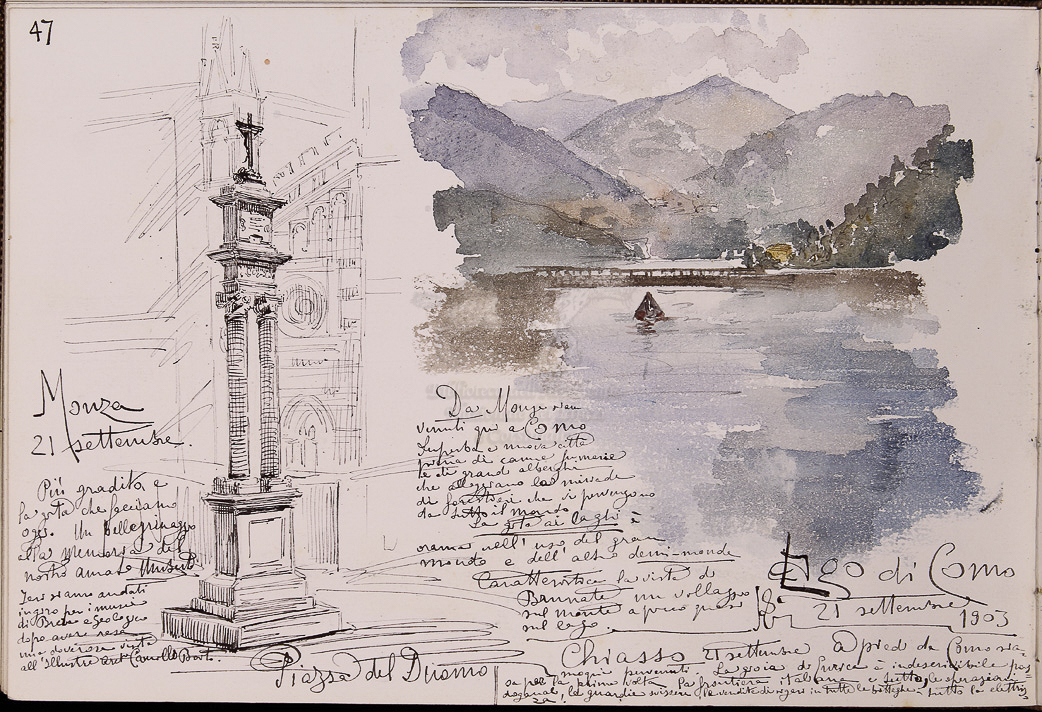 47
Monza
21 settembre.
Più gradita è
la gita che facciamo
oggi. Un Pellegrinaggio
alla memoria del
nostro amato
Ieri siamo andati
in giro per i musei
di Brera e geologico
dopo avere resa
una doverosa visita
all'illustre Camillo Boito.
Piazza del Duomo
Da Monza siam
venuti qui a Como
Superba e nuova città
piena di canne fumarie
e di grandi alberghi
che allogano le miriadi
di forestieri che vi pervengono
da tutto il mondo.
La gita ai laghi è
oramai nell'uso del gran
mondo e dell'altro demi-monde
Caratteristica la vista di
Brunate un villaggio
sul monte a picco
sul lago.
Lago di Como
21 settembre
1903
Chiasso 21 settembre A piedi da Como
pervenuti. La gioia di è indescrivibile
per la prima volta la frontiera italiana e tutte le operazioni
doganali, le guardie svizzere, la vendita di sigari in tutte le botteghe, tutto lo